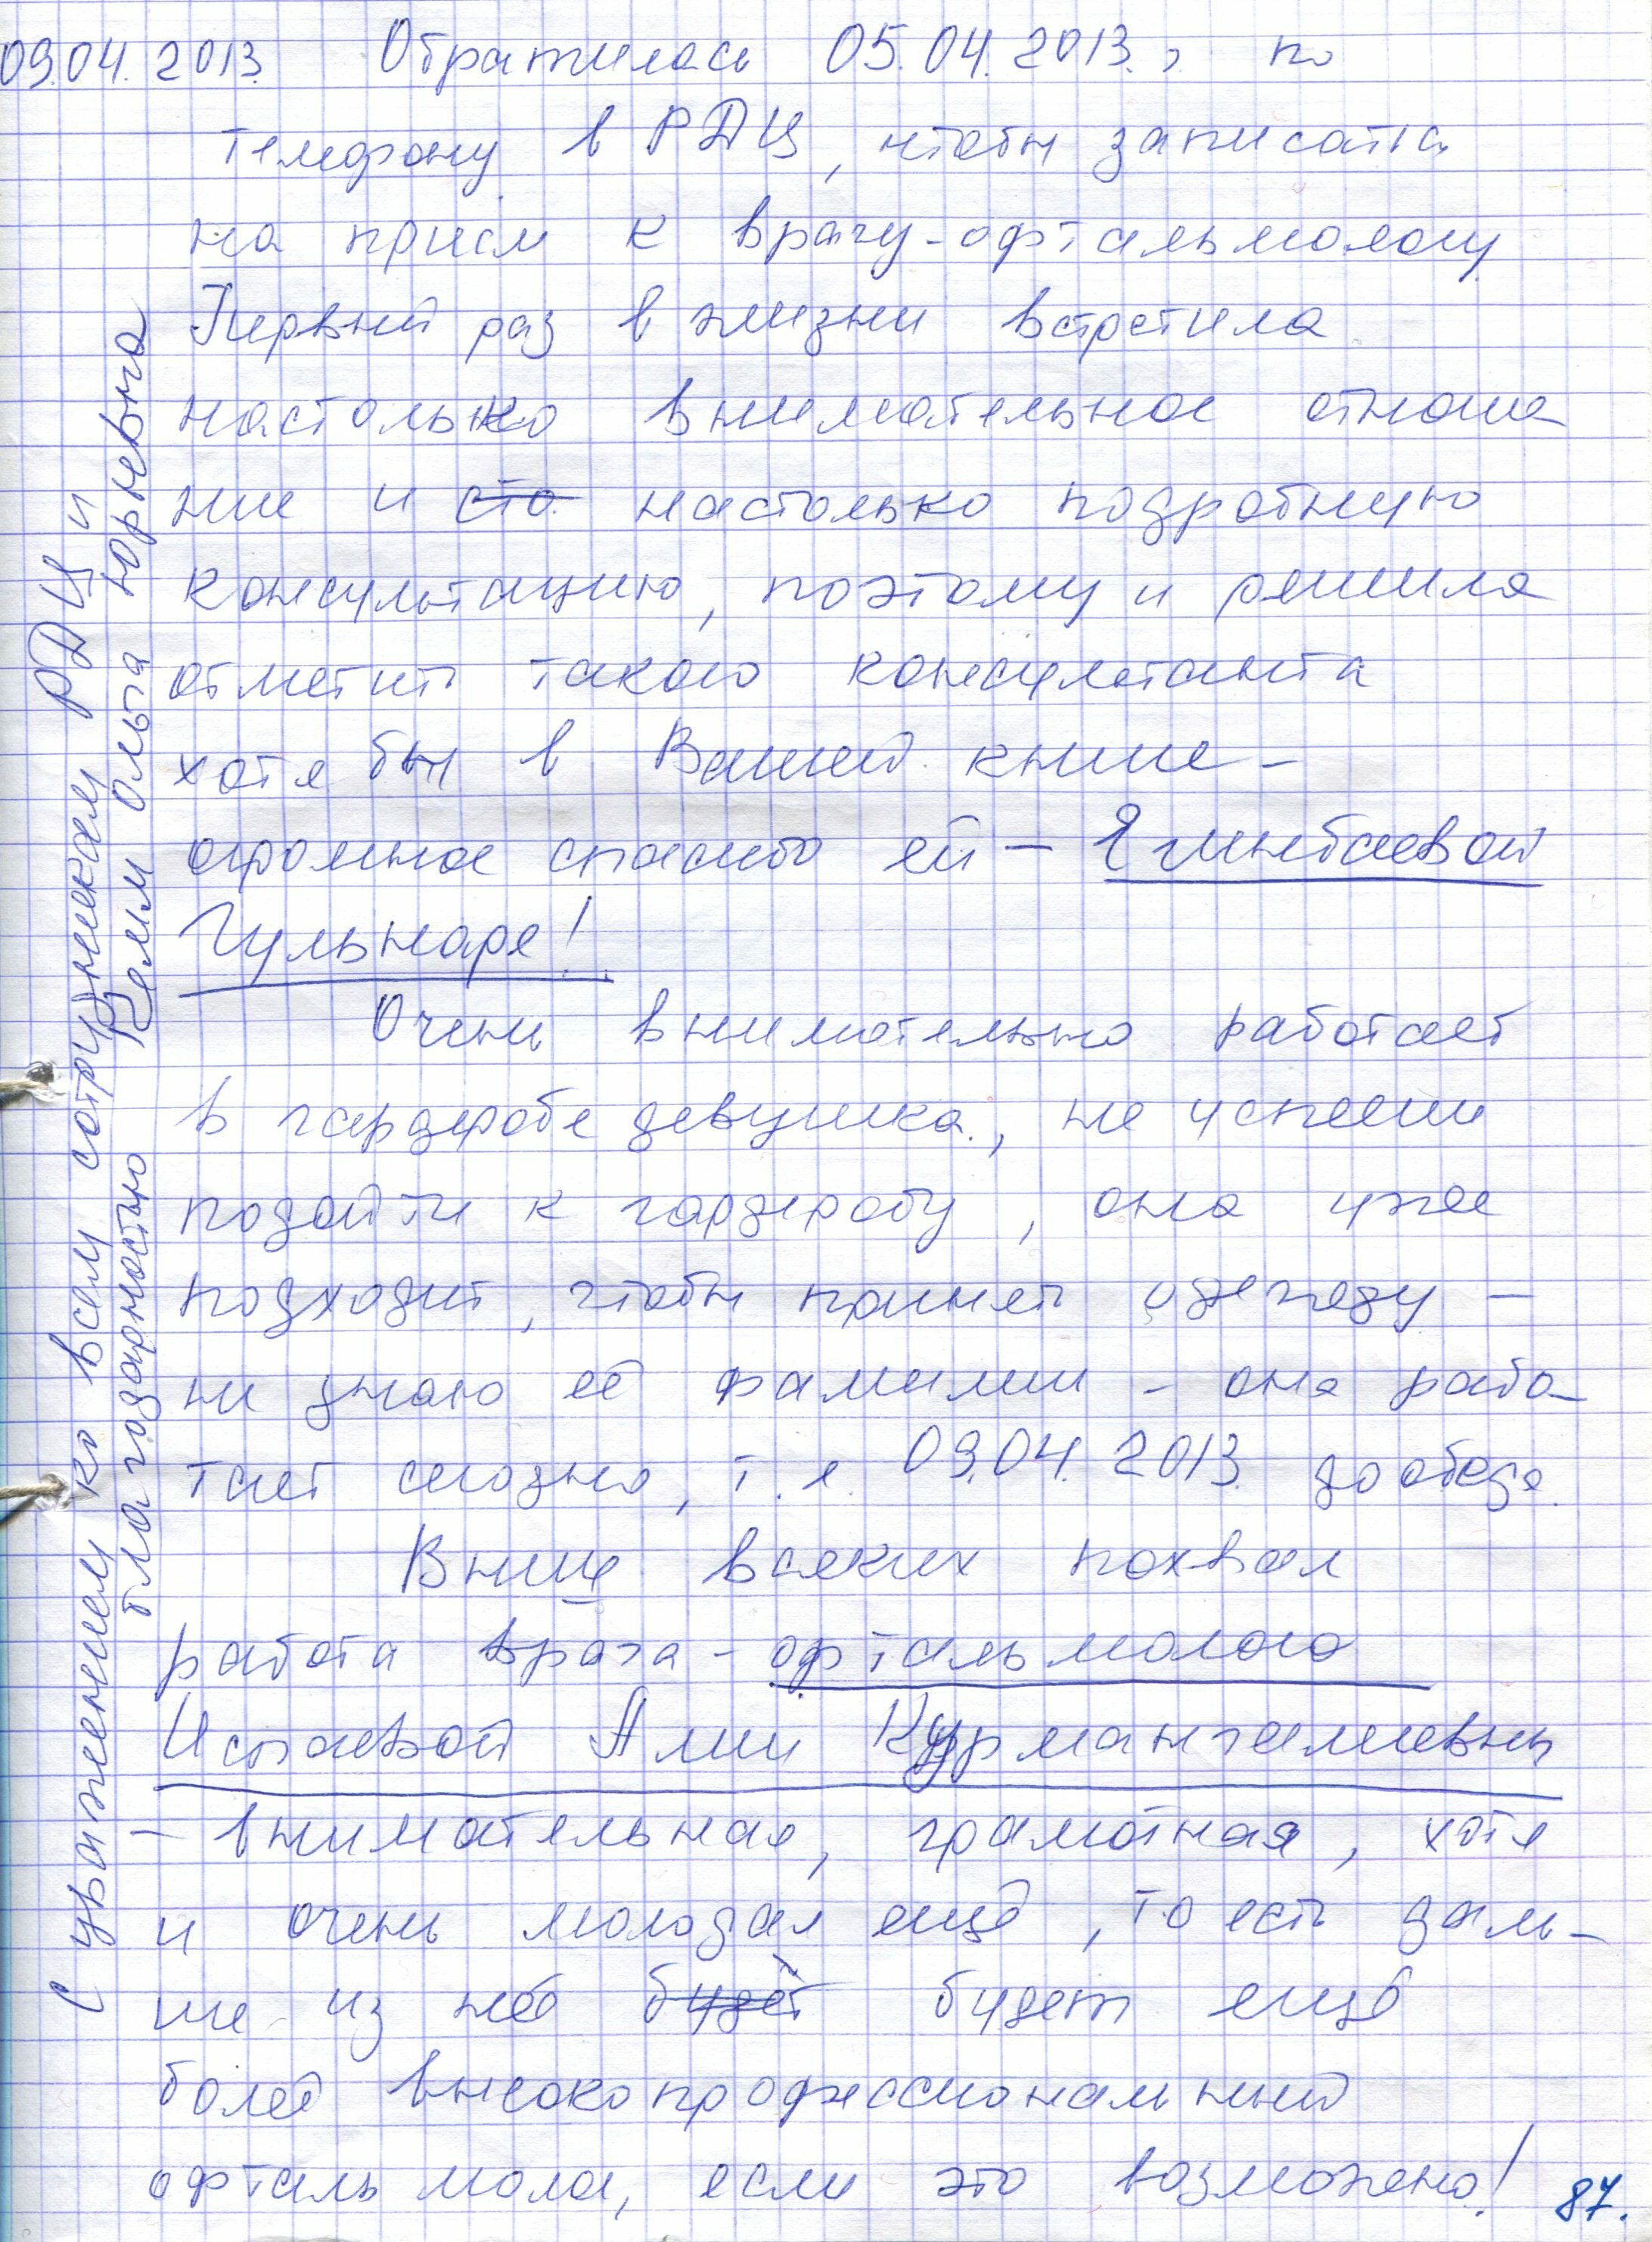 09.04.2013. Обратилась 05.04.2013., по
телефону в РДЦ, чтобы записаться
на приём к врачу-офтальмологу
Первый раз в жизни встретила
настолько внимательное отноше
ние и сто настолько подробную
консультацию, поэтому и решила
отметить такого консультанта
хотя бы в Вашей книге -
огромное спасибо ей - Ягинбаевой
Гульнаре!
Очень внимательно работает
в гардеробе девушка, не успеешь
подойти к гардеробу, она уже
подходит, чтобы принять одежду -
не знаю её фамилии - она рабо-
тает сегодня, т.е. 09.04.2013. до обеда.
Выше всяких похвал
работа врача-офтальмолога
Испаевой Алии Курмангалиевны
- внимательная, грамотная, хотя
и очень молодая ещё, то есть даль-
ше из неё будет будет ещё
более высокопрофессиональный
офтальмолог, если это возможно!
87.
С уважением ко всем сотрудникам РДЦ и
благодарностью Ольга Юрьевна